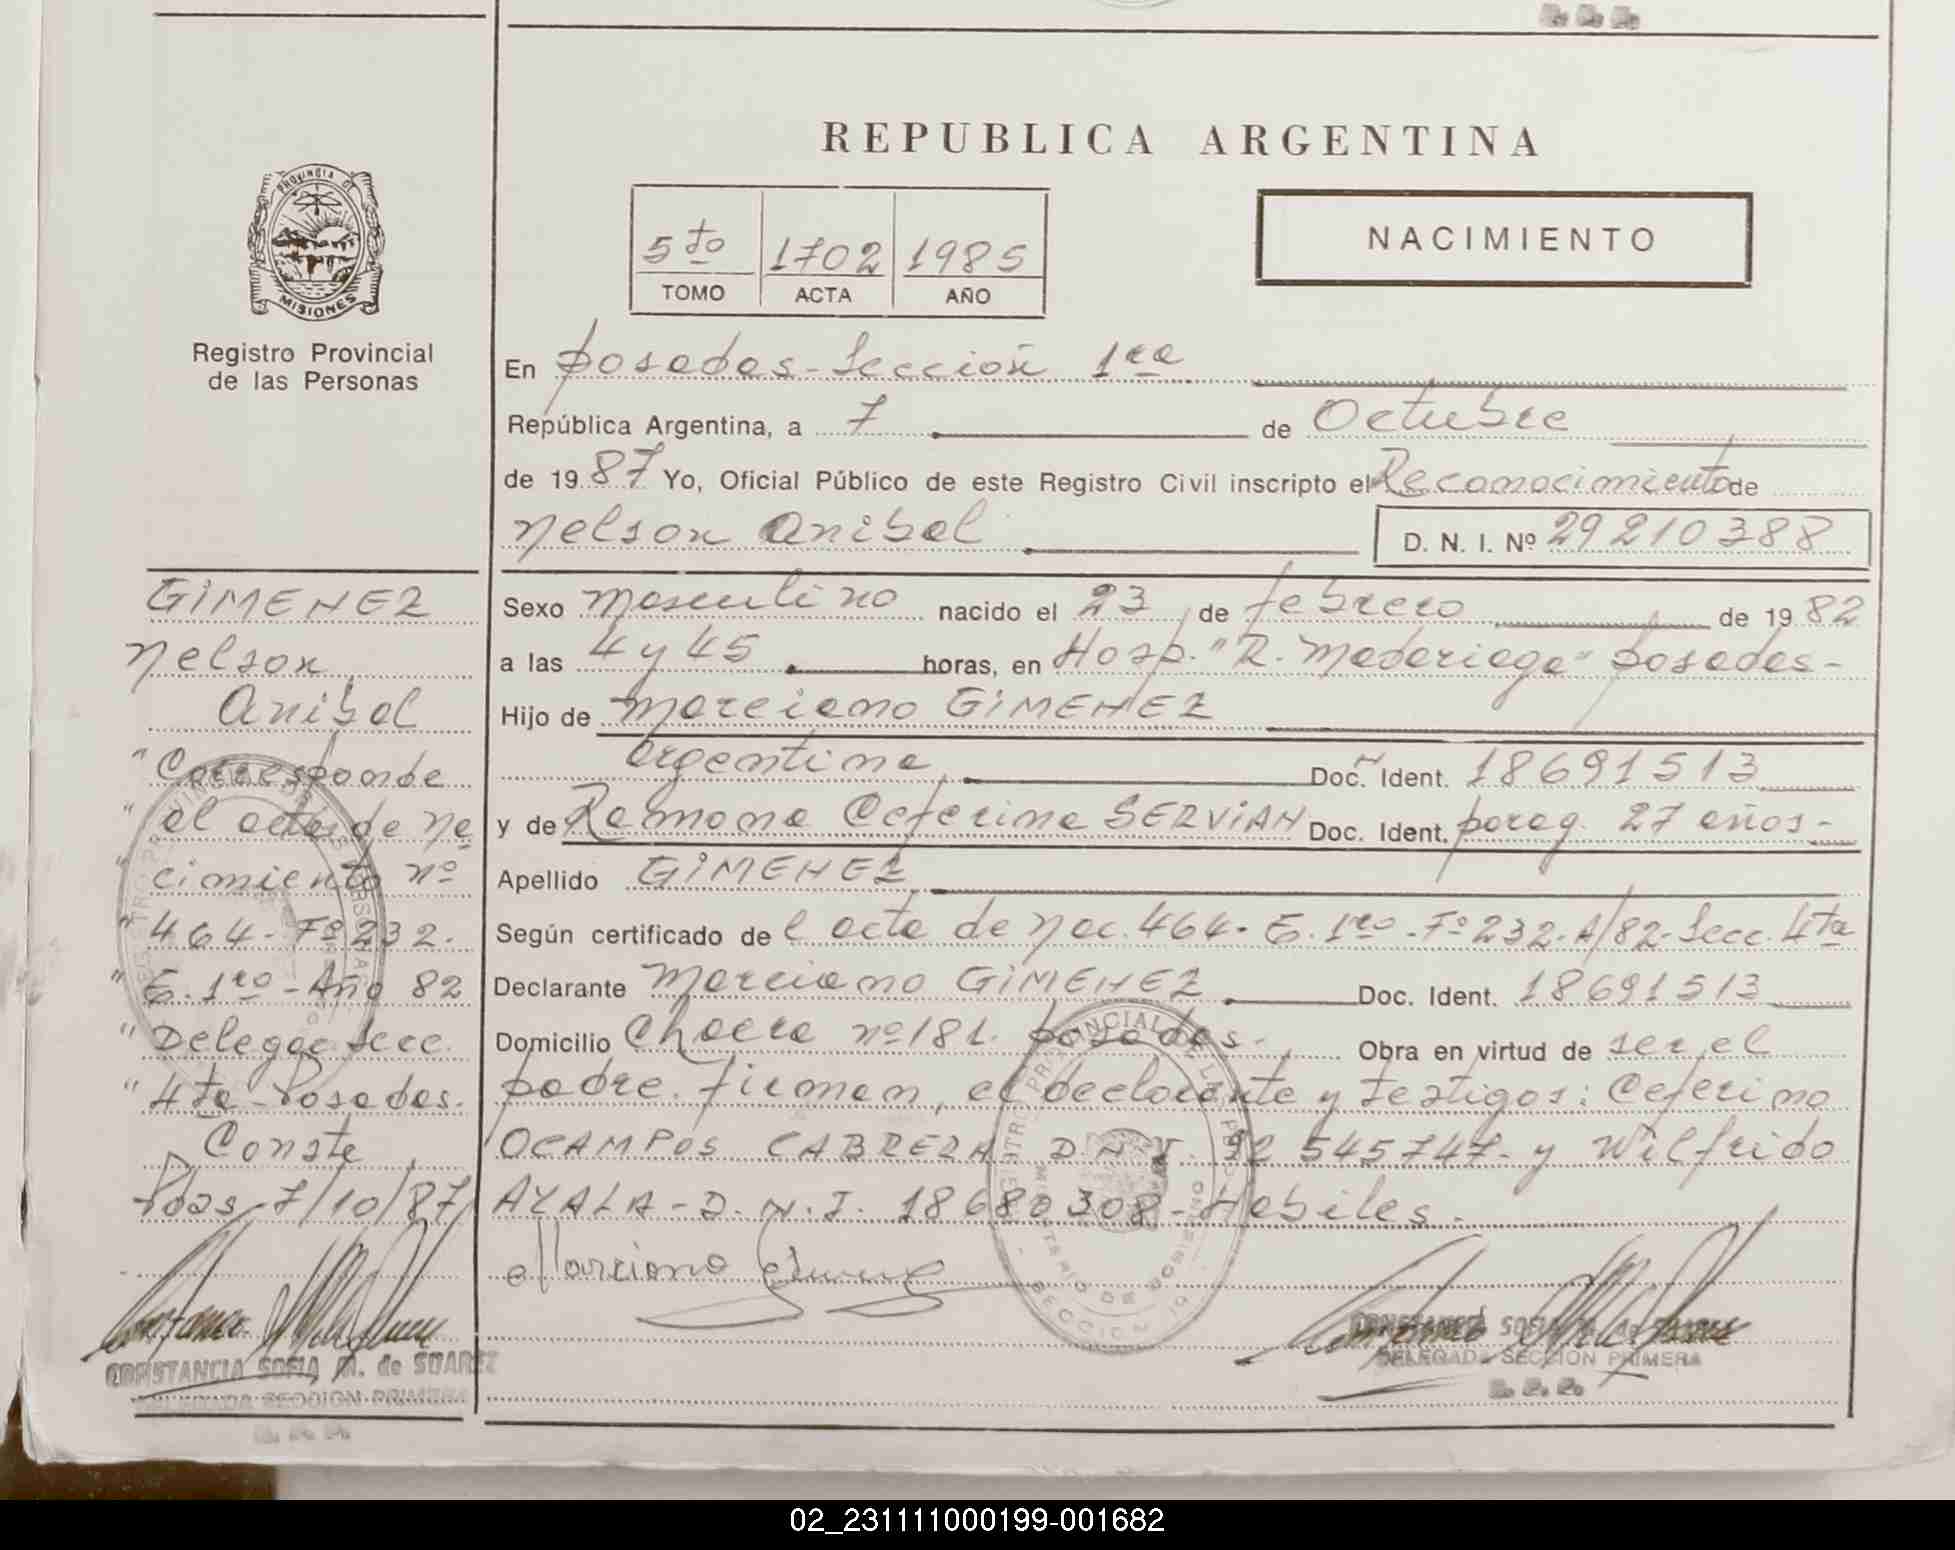 REPUBLICA ARGENTINA
5to 1702 1985
TOMO ACTA AÑO
NACIMIENTO
PROVINCIA DE MISIONES
Registro Provincial
de las Personas
En Posadas-Sección 1ra
República Argentina, a 7 de Octubre
de 1987 Yo, Oficial Público de este Registro Civil inscripto el Reconocimiento de
Nelson Anibal D. N. I. Nº 29210388
GIMENEZ
Nelson
Anibal
"Corresponde
" al acta de Na
" cimiento nº
" 464-Fº232.
" E. 1ro-Año 82
" Delegac Secc.
" 4ta-Posadas.
Conste
Pdas-7/10/87
CONSTANCIA SOFIA M. de SUAREZ
DELEGADA SECCION PRIMERA
Sexo Masculino nacido el 23 de febrero de 1982
a las 4 y 45 horas, en Hosp. "R. Madariaga" Posadas-
Hijo de Marciano GIMENEZ
argentino Doc. Ident. 18691513
y de Ramona Ceferina SERVIAN Doc. Ident. parag. 27 años-
Apellido GIMENEZ
Según certificado de l acta de Nac. 464. E. 1ro-Fº232-A/82-Secc. 4ta
Declarante Marciano GIMENEZ Doc. Ident. 18691513
Domicilio Chacra nº181. Posadas- Obra en virtud de ser el
padre. Firman, el declarante y testigos: Ceferino
OCAMPOS CABRERA D.N.I. 92 545747- y Wilfrido
AYALA-D.N.I. 18680308-Habiles.
Marciano
CONSTANCIA SOFIA M. de SUAREZ
DELEGADA SECCION PRIMERA
02_231111000199-001682